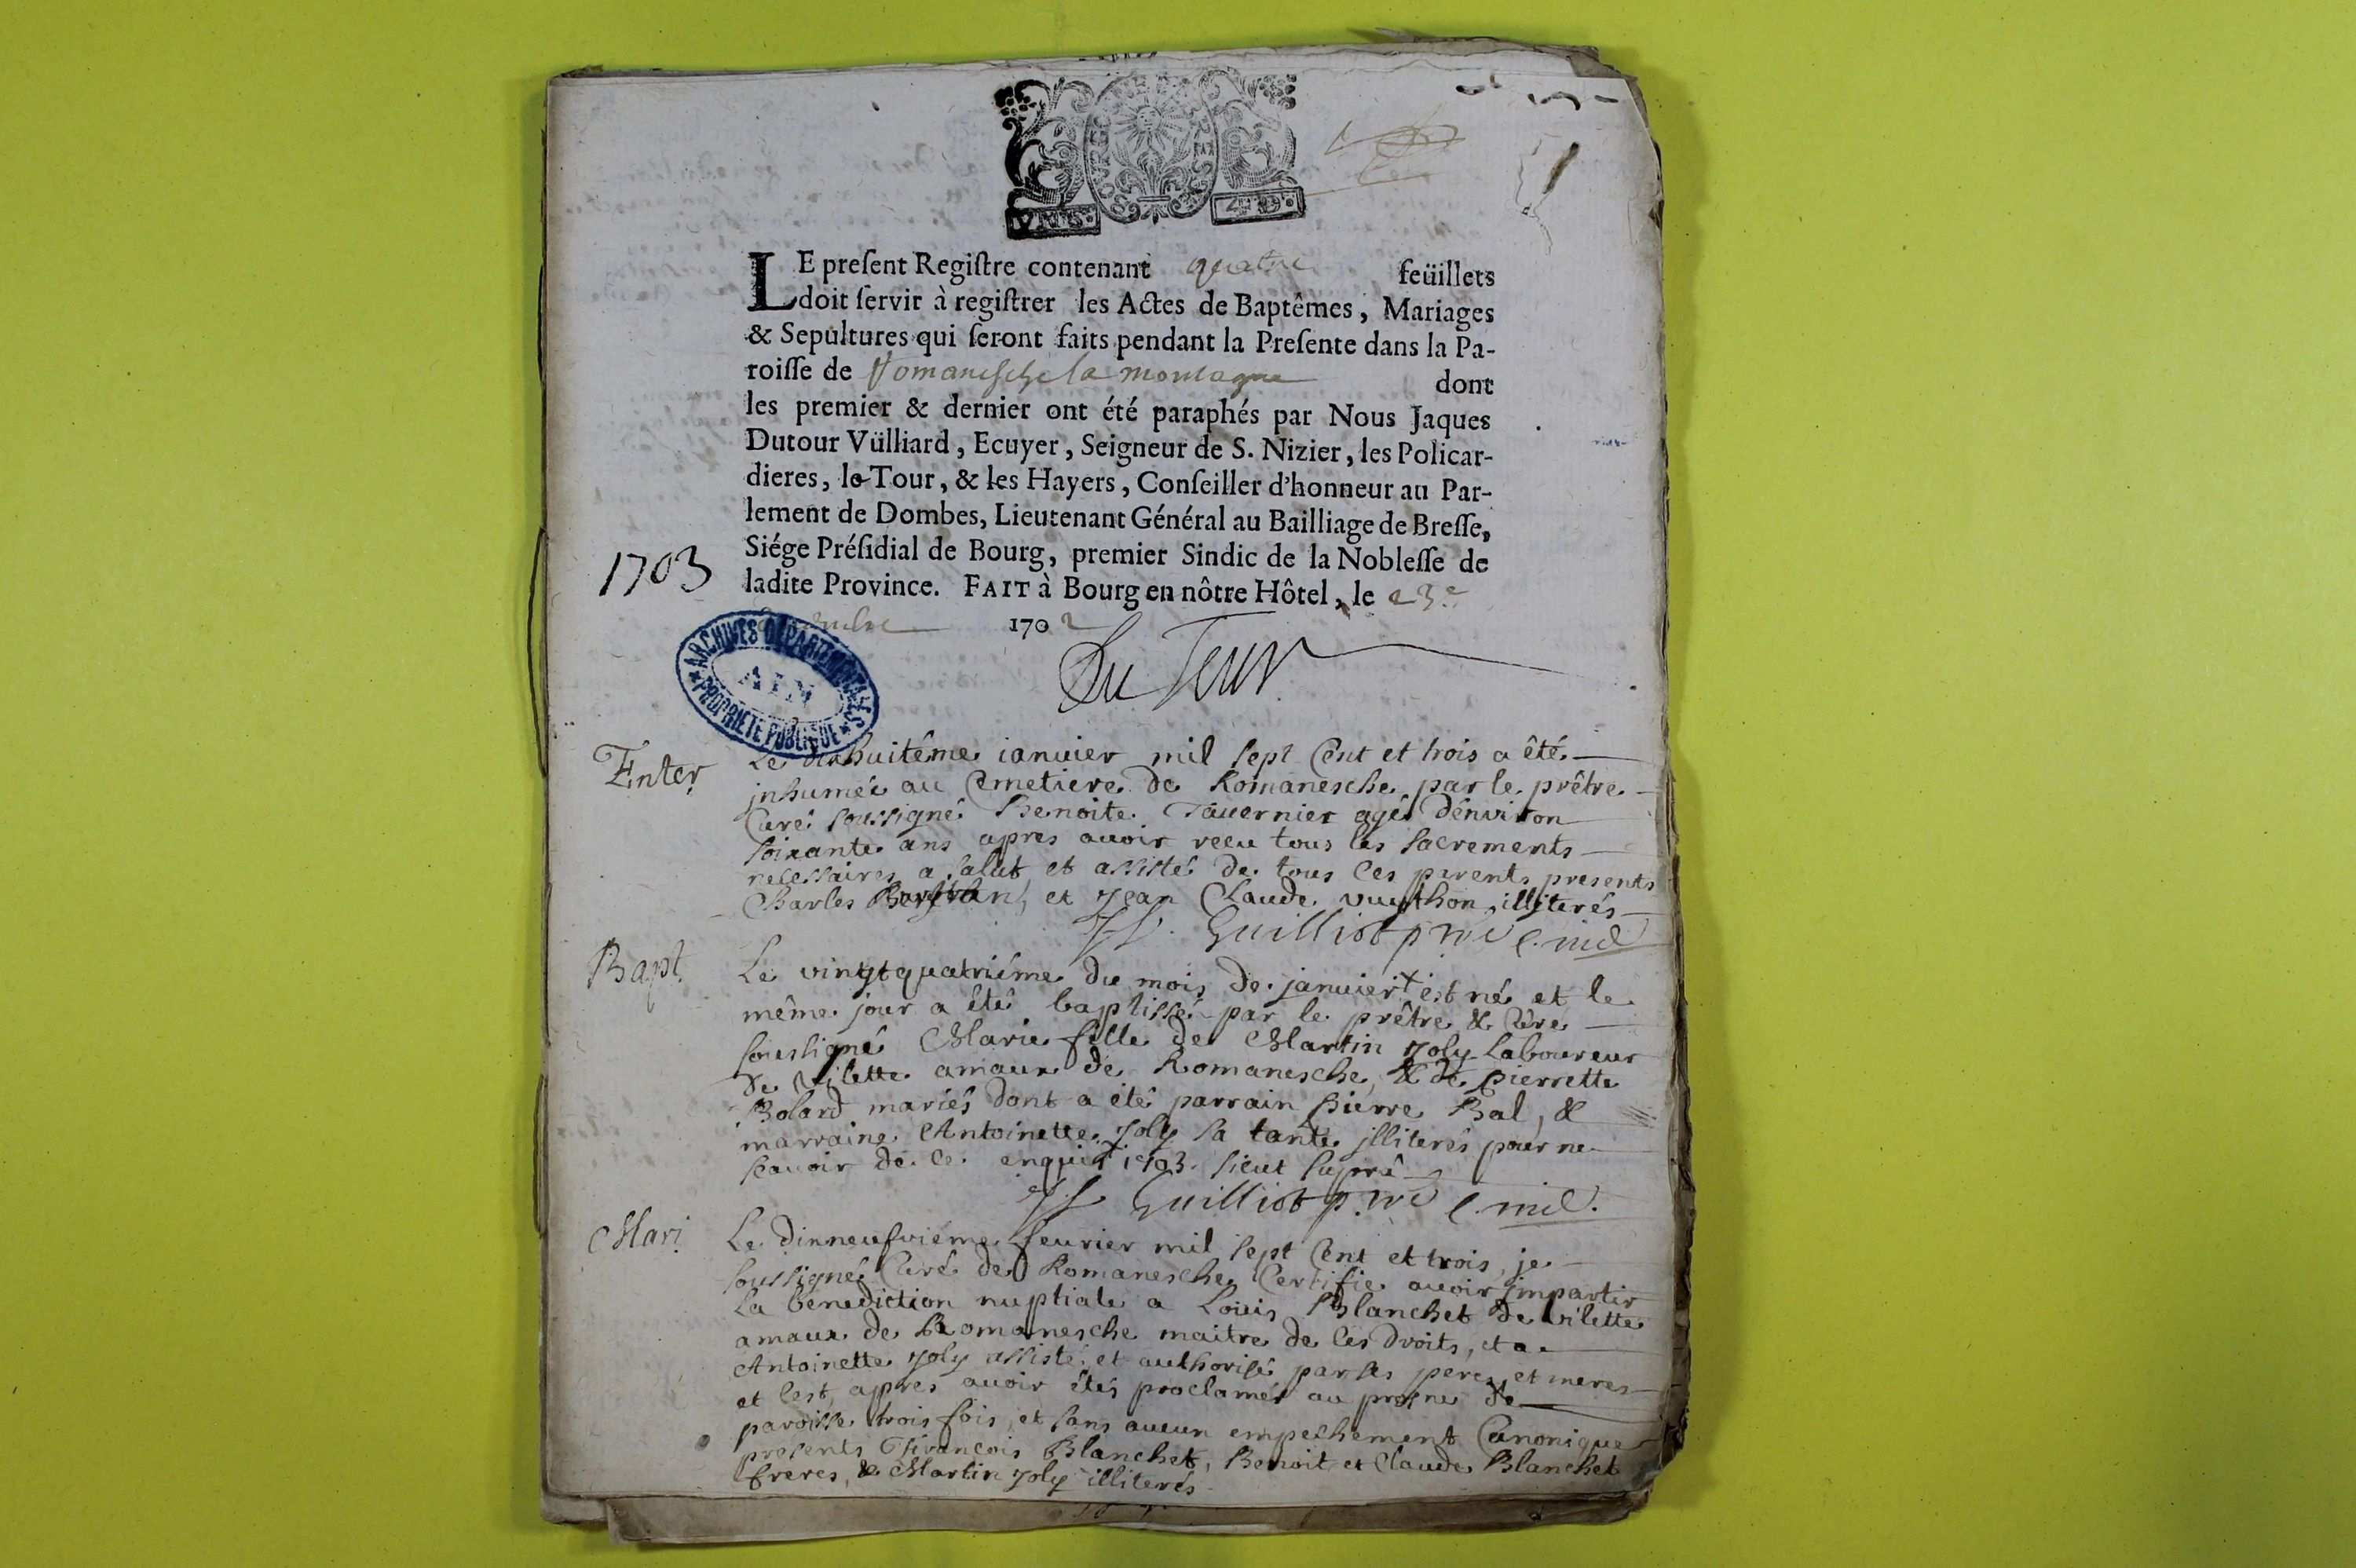 VNIS. 4 D.
LE preſent Regiſtre contenant quatre feüillets
doit ſervir à regiſtrer les Actes de Baptêmes, Mariages
& Sepultures qui ſeront faits pendant la Preſente dans la Pa-
roiſſe de Romanesche la montagne dont
les premier & dernier ont été paraphés par Nous Jaques
Dutour Vülliard, Ecuyer, Seigneur de S. Nizier, les Policar-
dieres, le Tour, & les Hayers, Conſeiller d'honneur au Par-
lement de Dombes, Lieutenant Général au Bailliage de Breſſe,
Siége Préſidial de Bourg, premier Sindic de la Nobleſſe de
1703
ladite Province. FAIT à Bourg en nôtre Hôtel, le 23e
1702
Du Tour
ARCHIVES DÉPARTEMENTALES
AIN
PROPRIÉTÉ PUBLIQUE
Enter
Le dixhuitême ianuier mil sept Cent et trois a êté
inhumée au Cemetiere de Romanesche par le prêtre
Curé soussigné Benoite Tauernier agée dênviron
soixante ans apres auoir recu tous les sacrements
necessaires a salut et assisté de tous ces parents presents
Charles et Jean Claude vuython illiterés
Guilliot
Bapt.
Le vingtquatriéme du mois de januier + est né et le
même jour a êté baptissé par le prêtre & Cure
soussigné Marie fille de Martin Joly Laboureur
de vilette amaux de Romanesche, & de pierrette
Bolard mariés dont a été parrain pierre Bal, &
marraine Antoinette Joly sa tante illiterés pour ne
scauoir de ce enquis 1703. sicut suprâ
Guilliot
Mari
Le dixneufvieme feurier mil sept Cent et trois, je
soussigné Curé de Romanesche Certifie auoir impartir
La benediction nuptiale a Louis Blanchet de vilette
amaux de Romanesche maitre de ces droits, et a
Antoinette Joly assisté et authorisé par ses peres et meres
et cest apres auoir êtés proclamés au prosne de
paroisse trois fois, et sans aucun empechement Canonique
presents François Blanchet, Benoit et Claude Blanchet
freres, & Martin Joly illiterés